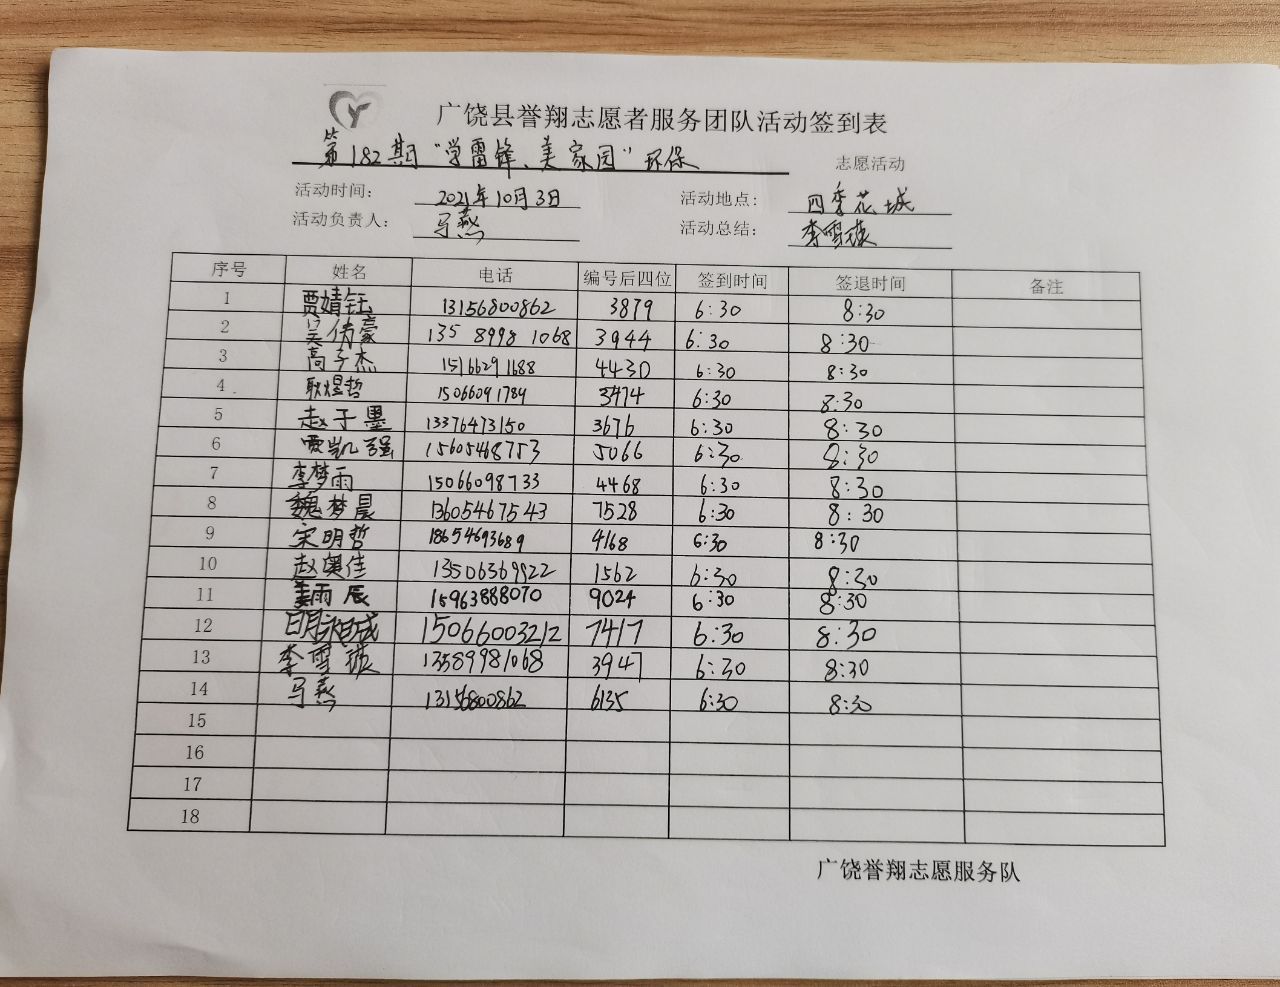 广饶县誉翔志愿者服务团队活动签到表
第182期“学雷锋、美家园”环保 志愿活动
活动时间: 2021年10月3日 活动地点: 四季花城
活动负责人: 马燕 活动总结: 李雪璇
序号 姓名 电话 编号后四位 签到时间 签退时间 备注
1 贾婧钰 13156800862 3879 6:30 8:30
2 吴伟豪 135 8998 1068 3944 6:30 8:30
3 高子杰 15166291688 4430 6:30 8:30
4 耿煜哲 15066091784 3474 6:30 8:30
5 赵子墨 13376473150 3676 6:30 8:30
6 贾凯强 15605468753 5066 6:30 8:30
7 李梦雨 15066098733 4468 6:30 8:30
8 魏梦晨 13605467543 7528 6:30 8:30
9 宋明哲 18654693689 4168 6:30 8:30
10 赵奥佳 13506369922 1562 6:30 8:30
11 姜雨辰 15963888070 9024 6:30 8:30
12 15066003212 7417 6:30 8:30
13 李雪璇 13589981068 3947 6:30 8:30
14 马燕 13156800862 6135 6:30 8:30
15
16
17
18
广饶誉翔志愿服务队